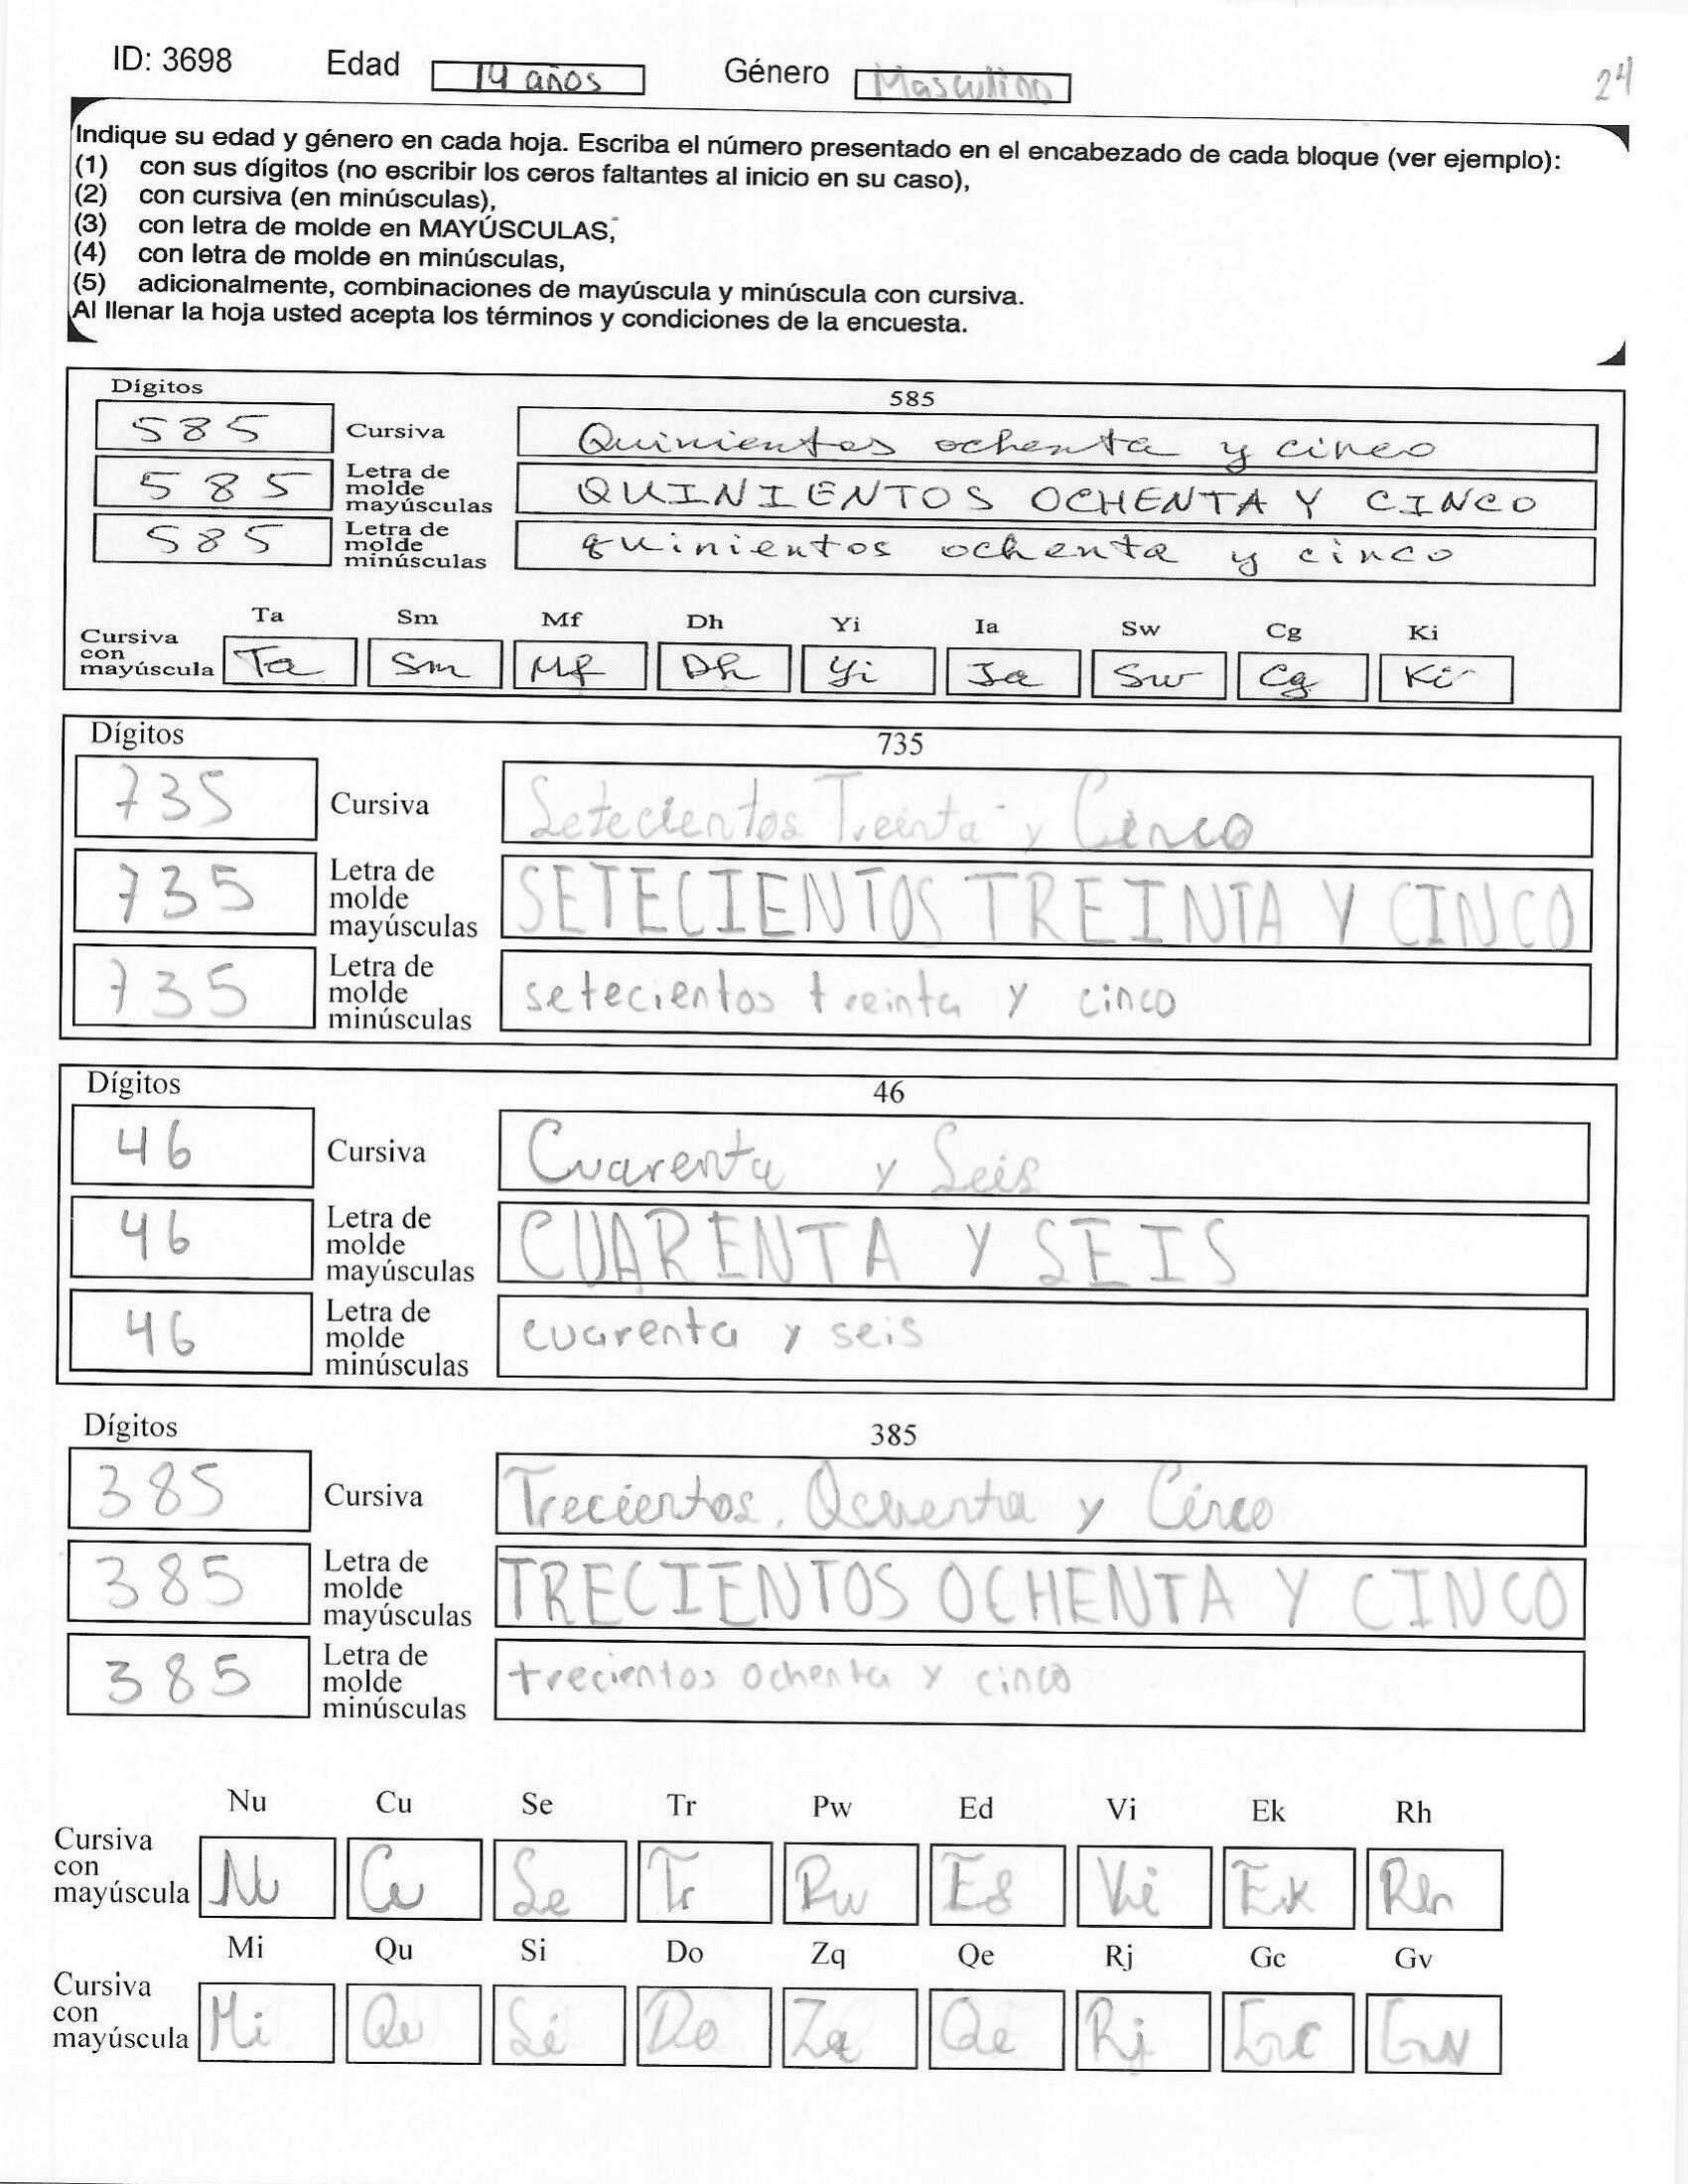 ID: 3698 Edad 14 años Género Masculino 24
Indique su edad y género en cada hoja. Escriba el número presentado en el encabezado de cada bloque (ver ejemplo):
(1) con sus dígitos (no escribir los ceros faltantes al inicio en su caso),
(2) con cursiva (en minúsculas),
(3) con letra de molde en MAYÚSCULAS,
(4) con letra de molde en minúsculas,
(5) adicionalmente, combinaciones de mayúscula y minúscula con cursiva.
Al llenar la hoja usted acepta los términos y condiciones de la encuesta.
Dígitos 585
585 Cursiva Quinientos ochenta y cinco
585 Letra de molde mayúsculas QUINIENTOS OCHENTA Y CINCO
585 Letra de molde minúsculas quinientos ochenta y cinco
Ta Sm Mf Dh Yi Ia Sw Cg Ki
Cursiva con mayúscula Ta Sm Mf Dh Yi Ia Sw Cg Ki
Dígitos 735
735 Cursiva Setecientos Treinta y Cinco
735 Letra de molde mayúsculas SETECIENTOS TREINTA Y CINCO
735 Letra de molde minúsculas setecientos treinta y cinco
Dígitos 46
46 Cursiva Cuarenta y Seis
46 Letra de molde mayúsculas CUARENTA Y SEIS
46 Letra de molde minúsculas cuarenta y seis
Dígitos 385
385 Cursiva Trecientos. Ochenta y Cinco
385 Letra de molde mayúsculas TRECIENTOS OCHENTA Y CINCO
385 Letra de molde minúsculas trecientos ochenta y cinco
Nu Cu Se Tr Pw Ed Vi Ek Rh
Cursiva con mayúscula Nu Cu Se Tr Pw Ed Vi Ek Rh
Mi Qu Si Do Zq Qe Rj Gc Gv
Cursiva con mayúscula Mi Qu Si Do Zq Qe Rj Gc Gv